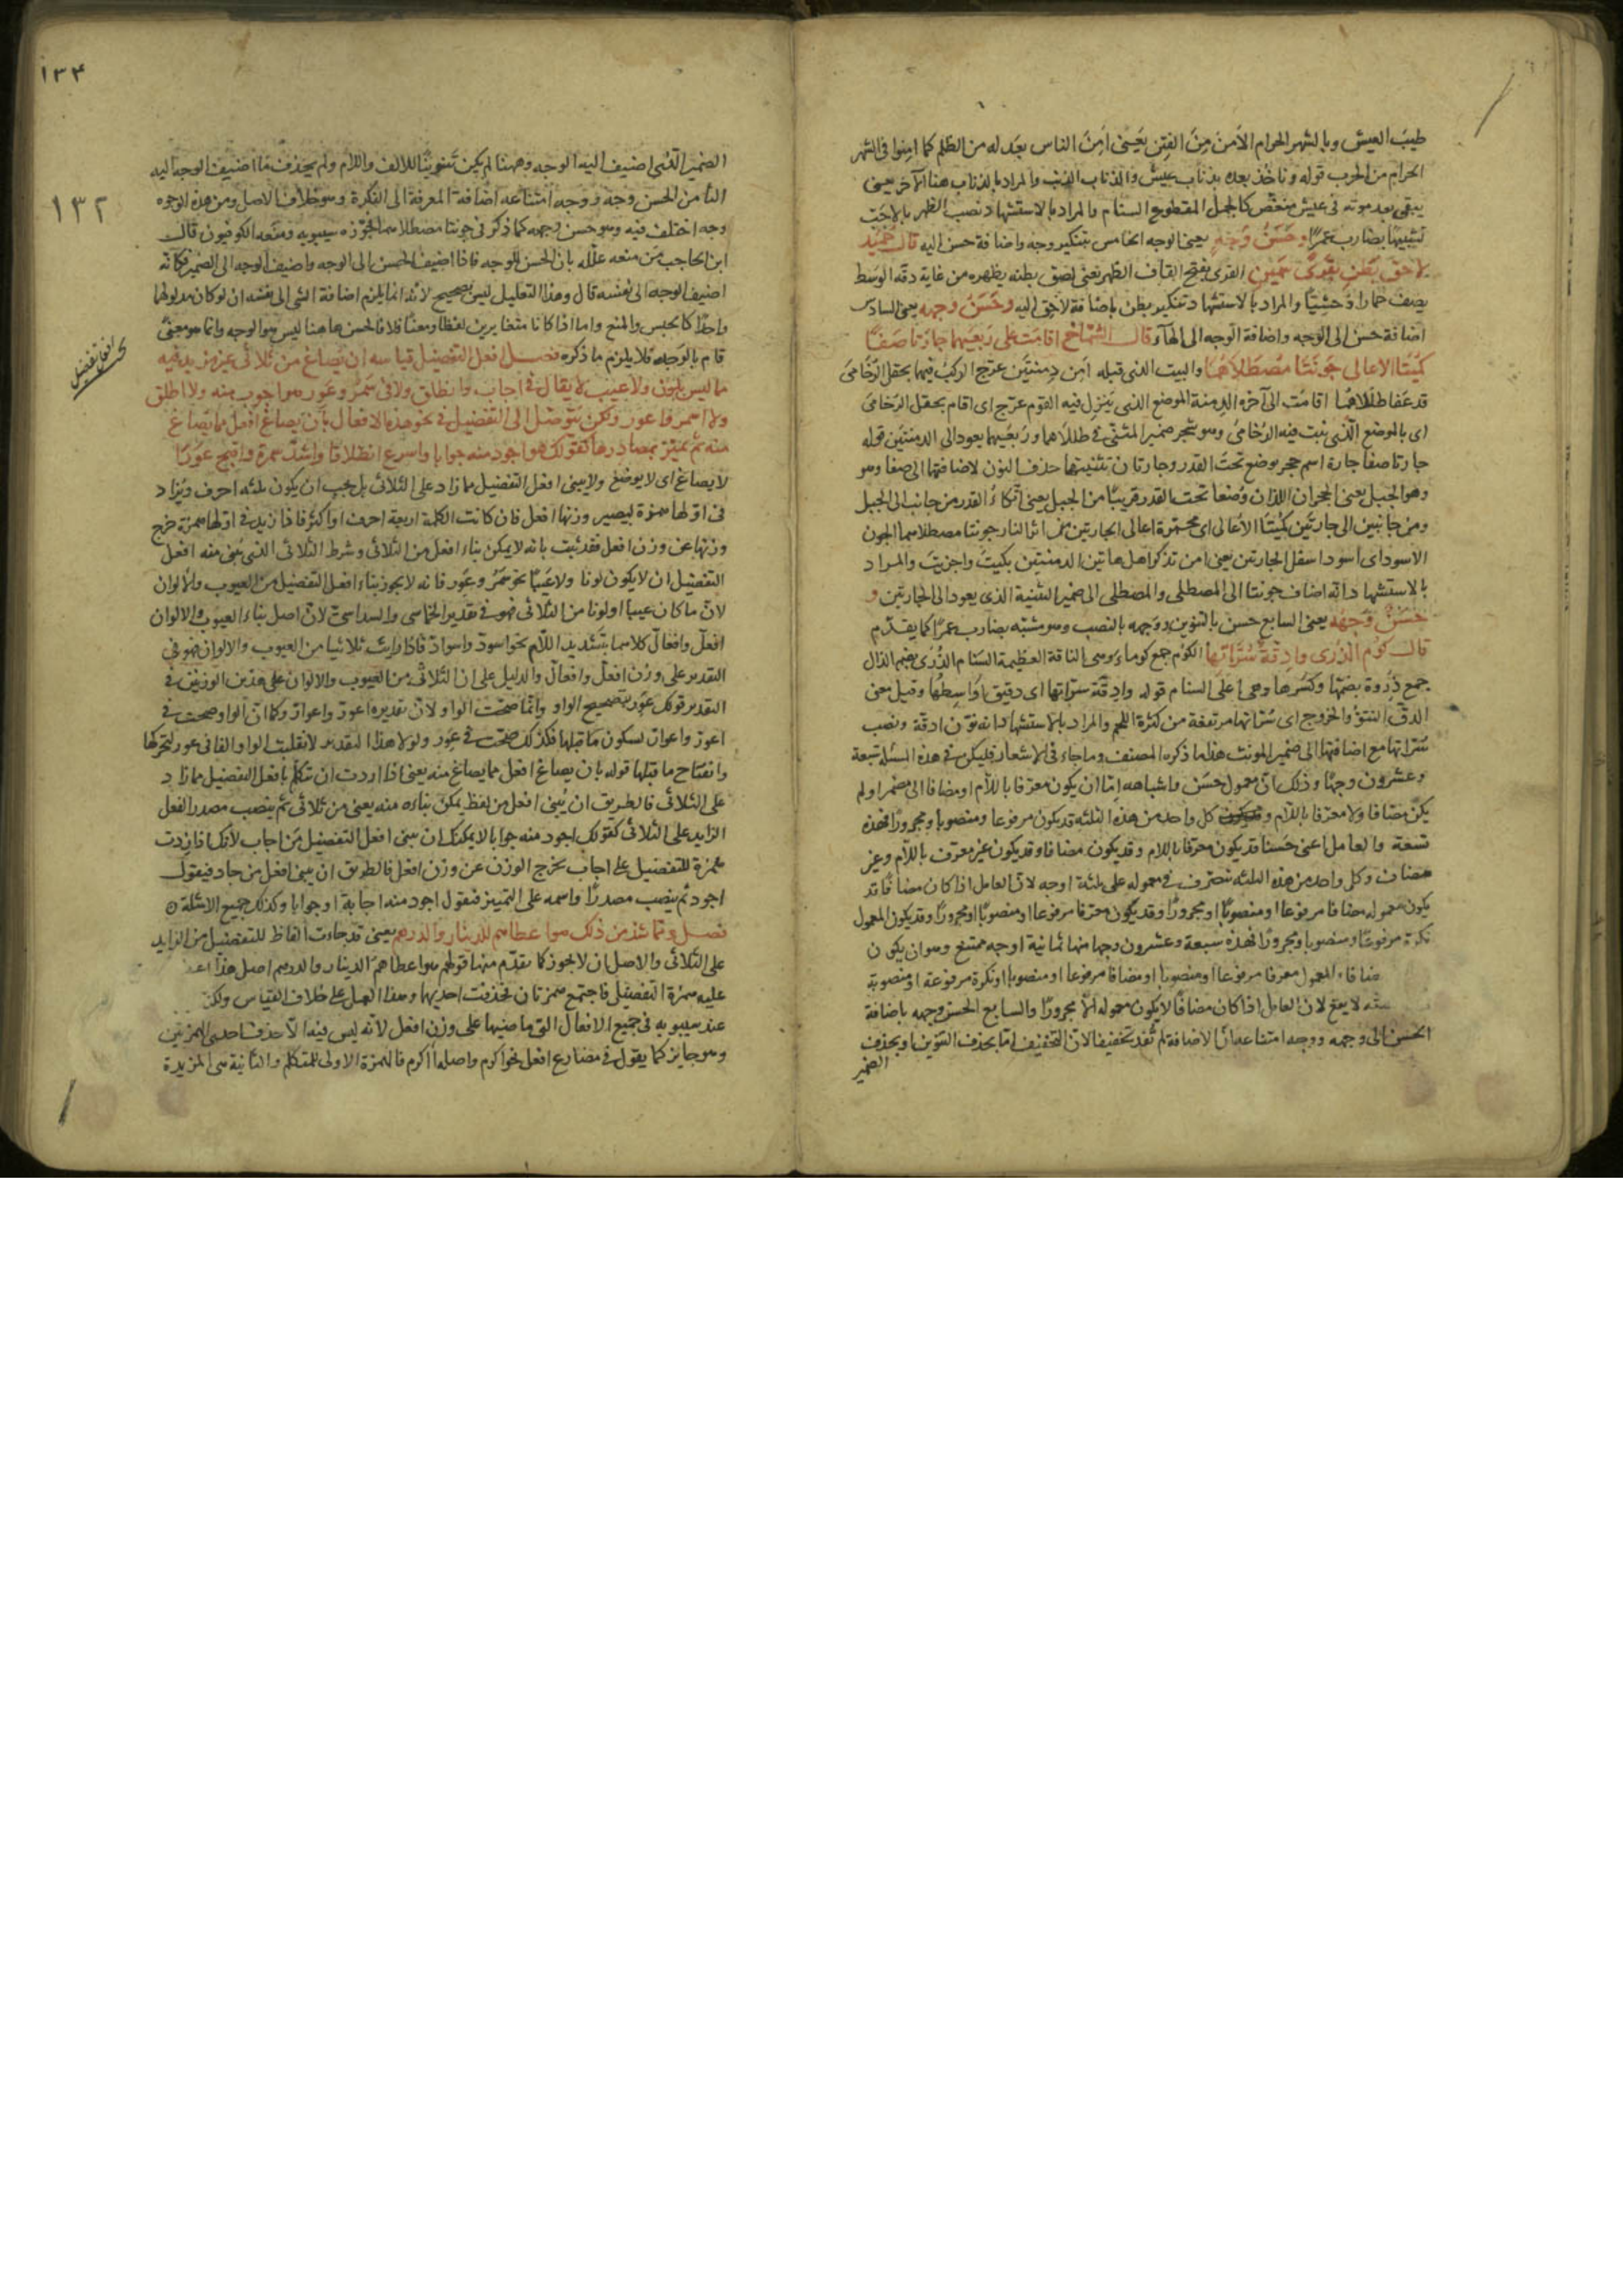 طيبَ العيش وبالشهر الحرام الاَمنَ مِنَ الفِتَن يَعْنى اَمِنَ الناس بعَد له من الظلم كما امِنوا فى الشهر
الحرام من الحرب قوله ونأخُذ بعده بذناب عيش والذناب الذنب والمراد بالذناب هنا الآخر يعنى
يبقى بعد موته فى عيش منغّص كالجمل المقطوع السنام والمراد بالاستشهاد نصب الظهر باَجَبّ
تشبيهًا بضارب عَمرًا وحَسَنُ وَجْهٍ يعنى الوجه الخامس بتنكير وجه واضافة حسن اليه قال حُمَيْد
لاحقِ بَطْنٍ بقَرًى سَمين القرى بفتح القاف الظهر يعنى لصق بطنه بظهره من غاية دقة الوسَط
يصف حمارا وَحْشِيّا والمراد بالاستشهاد تنكير بطن باضافة لاحق اليه وحَسَنُ وجهِه يعنى السادس
اضافة حسن الى الوجه واضافة الوجه الى الهاء قال الشمّاخ اقامَت على رَبْعَيهما جارَتا صَفًا
كُمَيْتا الاعالى جَونَتا مُصْطَلاهُما والبيت الذى قبله اَمِن دِمنتَين عرّج الركبُ فيهما بحقل الرُخامى
قد عَفا طَلَلاهُما اقامَت الى آخره الدِمنة الموضع الذى يَنزل فيه القوم عرّج اى اقام بحقل الرُخامى
اى بالموضع الذى ينبت فيه الرُخامى وهو شجر ضمير المثنى فى طللاهما ورَبعَيهما يعود الى الدمنتين قوله
جارتا صفا جارة اسم حجر موضع تحت القدر وجارتان تثنيتها حذف النون لاضافتها الى صفا وهو
وهو الجبل يعنى الحجران اللذان وُضعا تحت القدر قريبًا من الجبل يعنى اتّكاءُ القدر من جانب الى الجبل
ومن جانبين الى جارتَين كُميتا الاعالى اى محمرّة اعالى الجارتين من اثر النار جونتا مصطلاهما الجون
الاسود اى اسود اسفل الجارتين يعنى امن تذكر اهل هاتين الدمنتين بكيتَ واجزيتَ والمراد
بالاستشهاد انّه اضاف جونتا الى المصطلى والمصطلى الى ضمير التثنية الذى يعود الى الجارتين و
حَسَنٌ وَجْهَهُ يعنى السابع حسن بالتنوين ووجهه بالنصب وهو مشبّه بضارب عمرًا كما يقدّم
قال كُومَ الذُرى وادِقَةً سُرّاتِها الكُوم جمع كوماء وهى الناقة العظيمة السَنام الذُرَى بضم الذال
جمع ذِرْوة بضمّها وكسرها وهى اعلى السنام قوله وادقّة سرّاتها اى دقيق اَواسِطُها وقيل معنى
الدقّ النتوُّ والخروج اى سُرّاتها مرتفعة من كثرة اللحم والمراد بالاستشهاد انه نوّن ادقّة ونصب
سُرّاتها مع اضافتها الى ضمير المونث هذا ما ذكره المصنف وما جاء فى الاشعار فليكن فى هذه المسئلة سبعة
وعشرون وجهًا وذلك انّ معمول حسَن واشباهه اِمّا ان يكون معرّفا باللام او مضافا الى مضمر او لم
يكن مضافا ولا معرفا باللام كل واحد من هذه الثلثه قد يكون مرفوعا ومنصوبا ومجرورًا فهذه
تسعة والعامل اعنى حَسنًا قد يكون معرّفا باللام وقد يكون مضافا وقد يكون غير معرّف باللام وغير
مضاف وكل واحد من هذه الثلثه تصرّف فى معموله على ثلثة اوجه لانّ العامل اذا كان مضافًا قد
يكون معموله مضافا مرفوعا او منصوبًا او مجرورًا وقد يكون معرّفا مرفوعا او منصوبًا او مجرورًا وقد يكون المعمول
نكرة مرفوعًا ومنصوبا ومجرورًا فهذه سبعة وعشرون وجها منها ثمانية اوجه ممتنع وهو ان يكون
مضافا المعمول معرفا مرفوعا او منصوبا او مضافا مرفوعا او منصوبا او نكرة مرفوعة او منصوبة
لا يقع لان العامل اذا كان مضافًا لا يكون معموله الّا مجرورًا والسابع الحسن وجهه باضافة
الحسن الى وجهه ووجه امتناعه انّ الاضافة لم تُفد تخفيفا لان التخفيف امّا بحذف التنوين او بحذف
الضمير
١٣٤
الضمير الذى اضيف اليه الوجه وههنا لم يكن تنوينًا للالف واللام ولم يحذف ما اضيف الوجه اليه
الثامن الحسن وجهٍ ووجه امتناعه اضافة المعرفة الى النكرة وهو خلاف الاصل ومن هذه الوجوه
١٣٢
وجه اختلف فيه وهو حسن وجهه كما ذكر فى جونتا مصطلاهما فجوّزه سيبويه ومنَعه الكوفيون قال
ابن الحاجب مَن منعه علّله بان الحسن للوجه فاذا اضيف الحسن الى الوجه واضيف الوجه الى الضمير فكانّه
اضيف الوجه الى نفسه قال وهذا التعليل ليس بصحيح لانّه انما يلزم اضافة الشئ الى نفسه ان لو كان مدلولهما
واحدًا كالحبس والمنع واما اذا كانا متغايرين لفظا ومعنًا فلا فالحسن هاهنا ليس هو الوجه وانما هو معنىً
قام بالوَجه فلا يلزم ما ذكره فصل افعل التفضيل قياسه ان يُصاغ من ثلاثى غير مزيد فيه
بحث افعل تفضيل
ما ليس بلون ولا عيب لا يقال فى اجاب وانطلق ولا فى سَمُرَ وعَوِر هو اجوب منه ولا اطلق
ولا اسمر ولا اعور ولكن يتوصّل الى التفضيل فى نحو هذه الافعال بأن يصاغ افعل مما يصاغ
منه ثم يميّز بمصادرها كقولك هو اجود منه جوابا واسرع انطلاقا واشدّ سمرة واقبح عَوَرًا
لا يصاغ اى لا يوضع ولا يبنى افعل التفضيل مما زاد على الثلاثى بل يجب ان يكون ثلثه احرف ويُزاد
فى اوّلها همزة ليصير وزنها افعل فان كانت الكلمة اربعة احرف او اكثر فاذا زيد فى اوّلها همزة خرج
وزنها عن وزن افعل فقد ثبت بانه لا يمكن بناء افعل من الثلاثى وشرط الثلاثى الذى يبنى منه افعل
التفضيل ان لا يكون لونا ولا عَيبًا نحو سَمُرَ وعَوِر فانه لا يجوز بناء افعل التفضيل من العيوب والالوان
لانّ ما كان عيبا او لونا من الثلاثى فهو فى تقدير الخماسى والسداسىّ لانّ اصل بناء العيوب والالوان
افعلّ وافعالّ كلاهما بتشديد اللام نحو اسودّ واسوادّ فاذا رايت ثلاثيا من العيوب والالوان فهو فى
التقدير على وزن افعلّ وافعالّ والدليل على ان الثلاثى من العيوب والالوان على هذين الوزنين فى
التقدير قولك عَوِر بتصحيح الواو وانّما صحّت الواو لانّ تقديره اعورّ واعوارّ وكما انّ الواو صحت فى
اعورّ واعوارّ لسكون ما قبلها فكذلك صحّت فى عَوِر ولولا هذا التقدير لانقلبت الواو الفا فى عور لتحركها
وانفتاح ما قبلها قوله بان يصاغ افعل مما يصاغ منه يعنى اذا اردت ان تتكلم بأفعل التفضيل مما زاد
على الثلاثى فالطريق ان يُبنى افعل من لفظ يمكن بناءه منه يعنى من ثلاثى ثم ينصب مصدر الفعل
الزايد على الثلاثى كقولك اجود منه جوابا لا يمكنك ان تبنى افعل التفضيل مَن اجاب لأنك ان زدت
همزة للتفضيل على اجاب يخرج الوزن عن وزن افعل فالطريق ان يبنى افعل من جاد فيقول
اجود ثم ينصب مصدرًا واسمه على التمييز فتقول اجود منه اجابة او جوابا وكذلك جميع الامثلة
فصل ومما شذ من ذلك هو اعطاهم للدينار والدرهم يعنى قد جاءت الفاظ للتفضيل من الزايد
على الثلاثى والاصل ان لا يجوز كما يقدّم منها قولهم هو اعطاهم الدينار والدرهم اصل هذا
عليه همزة التفضيل فاجتمع همزتان فحذفت احديهما وهذا العمل على خلاف القياس ولكن
عند سيبويه فى جميع الافعال التى ماضيها على وزن افعل لانه ليس فيه الّا حذف احدى الهمزتين
وهو جايز كما يقول فى مضارع افعل نحو اكرم واصله أأكرم فالهمزة الاولى للمتكلم والثانية هى المزيدة